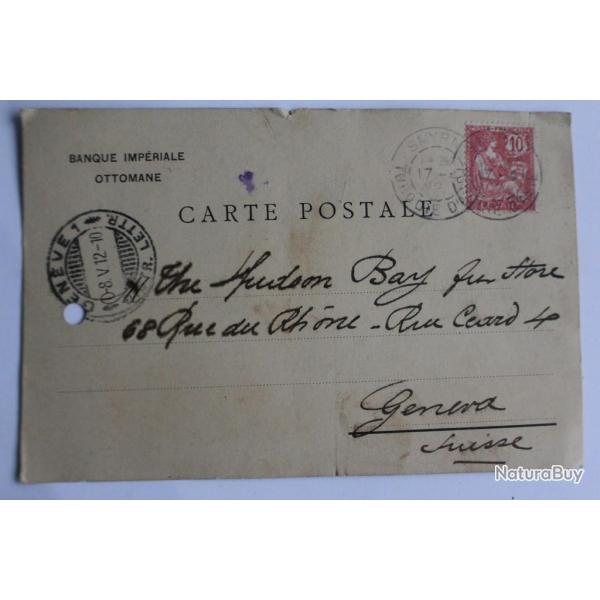 BANQUE IMPÉRIALE
OTTOMANE
CARTE POSTALE
10
GENÈVE 1
-8.V.12-10
LETTR.
The Hudson Bay fur Store
68 Rue du Rhône - Rue Céard 4
Geneva
Suisse
NaturaBuy